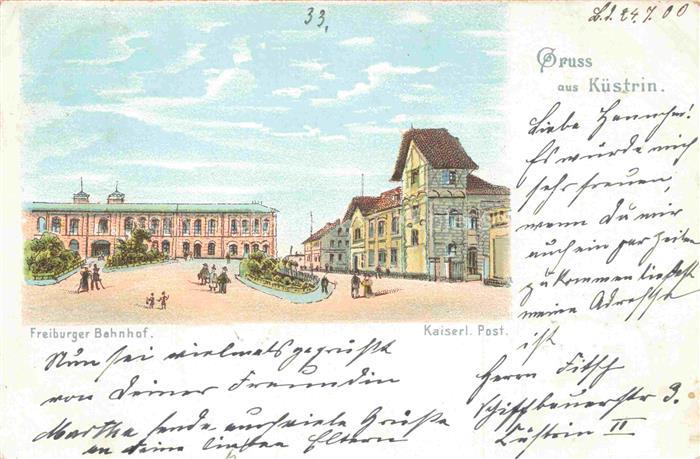 33.
L.d. 24.7.00
Gruss
aus Küstrin.
Liebe Hannchen.
Es würde mich
sehr freuen,
wenn Du mir
auch ein par Zeilen
zukommen ließest
meine Adresse
ist
Herrn Fitsch
Schiffbauerstr 3.
Cüstrin II
Freiburger Bahnhof.
Kaiserl. Post.
Nun sei vielmals gegrüßt
von Deiner Freundin
Martha sende auch viele Grüße
an deine lieben Eltern